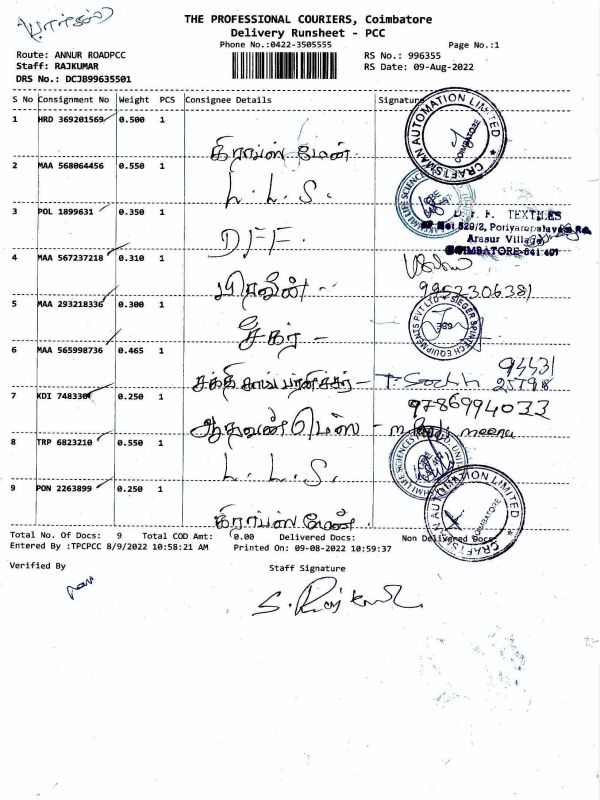 THE PROFESSIONAL COURIERS, Coimbatore
Delivery Runsheet - PCC
Phone No.:0422-3505555
Page No.:1
Route: ANNUR ROADPCC
RS No.: 996355
Staff: RAJKUMAR
RS Date: 09-Aug-2022
DRS No.: DCJB99635501
S No Consignment No Weight PCS Consignee Details Signature
1 HRD 369201569 0.500 1
கிராப்ஸ் மேன்
CRAFTSMAN AUTOMATION LIMITED COIMBATORE
2 MAA 568064456 0.550 1
L. L. S.
3 POL 1899631 0.350 1
D F F.
TEXTILES
Arasur Village
COIMBATORE-641 407
4 MAA 567237218 0.310 1
பிரவீன் - 9952306381
5 MAA 293218336 0.300 1
சேகர் -
SIEGER SPINTECH EQUIPMENTS PVT LTD CBE
6 MAA 565998736 0.465 1
94431
25798
7 KDI 748330 0.250 1
9786994033
ஆதவன் மெஸ் - meena
8 TRP 6823210 0.550 1
L. L. S.
9 PON 2263899 0.250 1
கிராப்ஸ் மேன்
CRAFTSMAN AUTOMATION LIMITED COIMBATORE
Total No. Of Docs: 9 Total COD Amt: 0.00 Delivered Docs: Non Delivered Docs
Entered By :TPCPCC 8/9/2022 10:58:21 AM Printed On: 09-08-2022 10:59:37
Verified By Staff Signature
S. Rajkumar